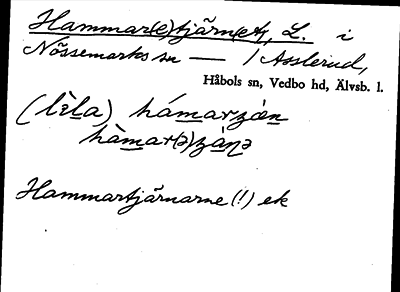 Hammar(e)tjärn(et), L. i
Nössemarks sn — / Asslerud,
Håbols sn, Vedbo hd, Älvsb. l.
(lèla) hámarzæn
hàmar(ə)zá̤ṇə
Hammartjärnarne (!) ek